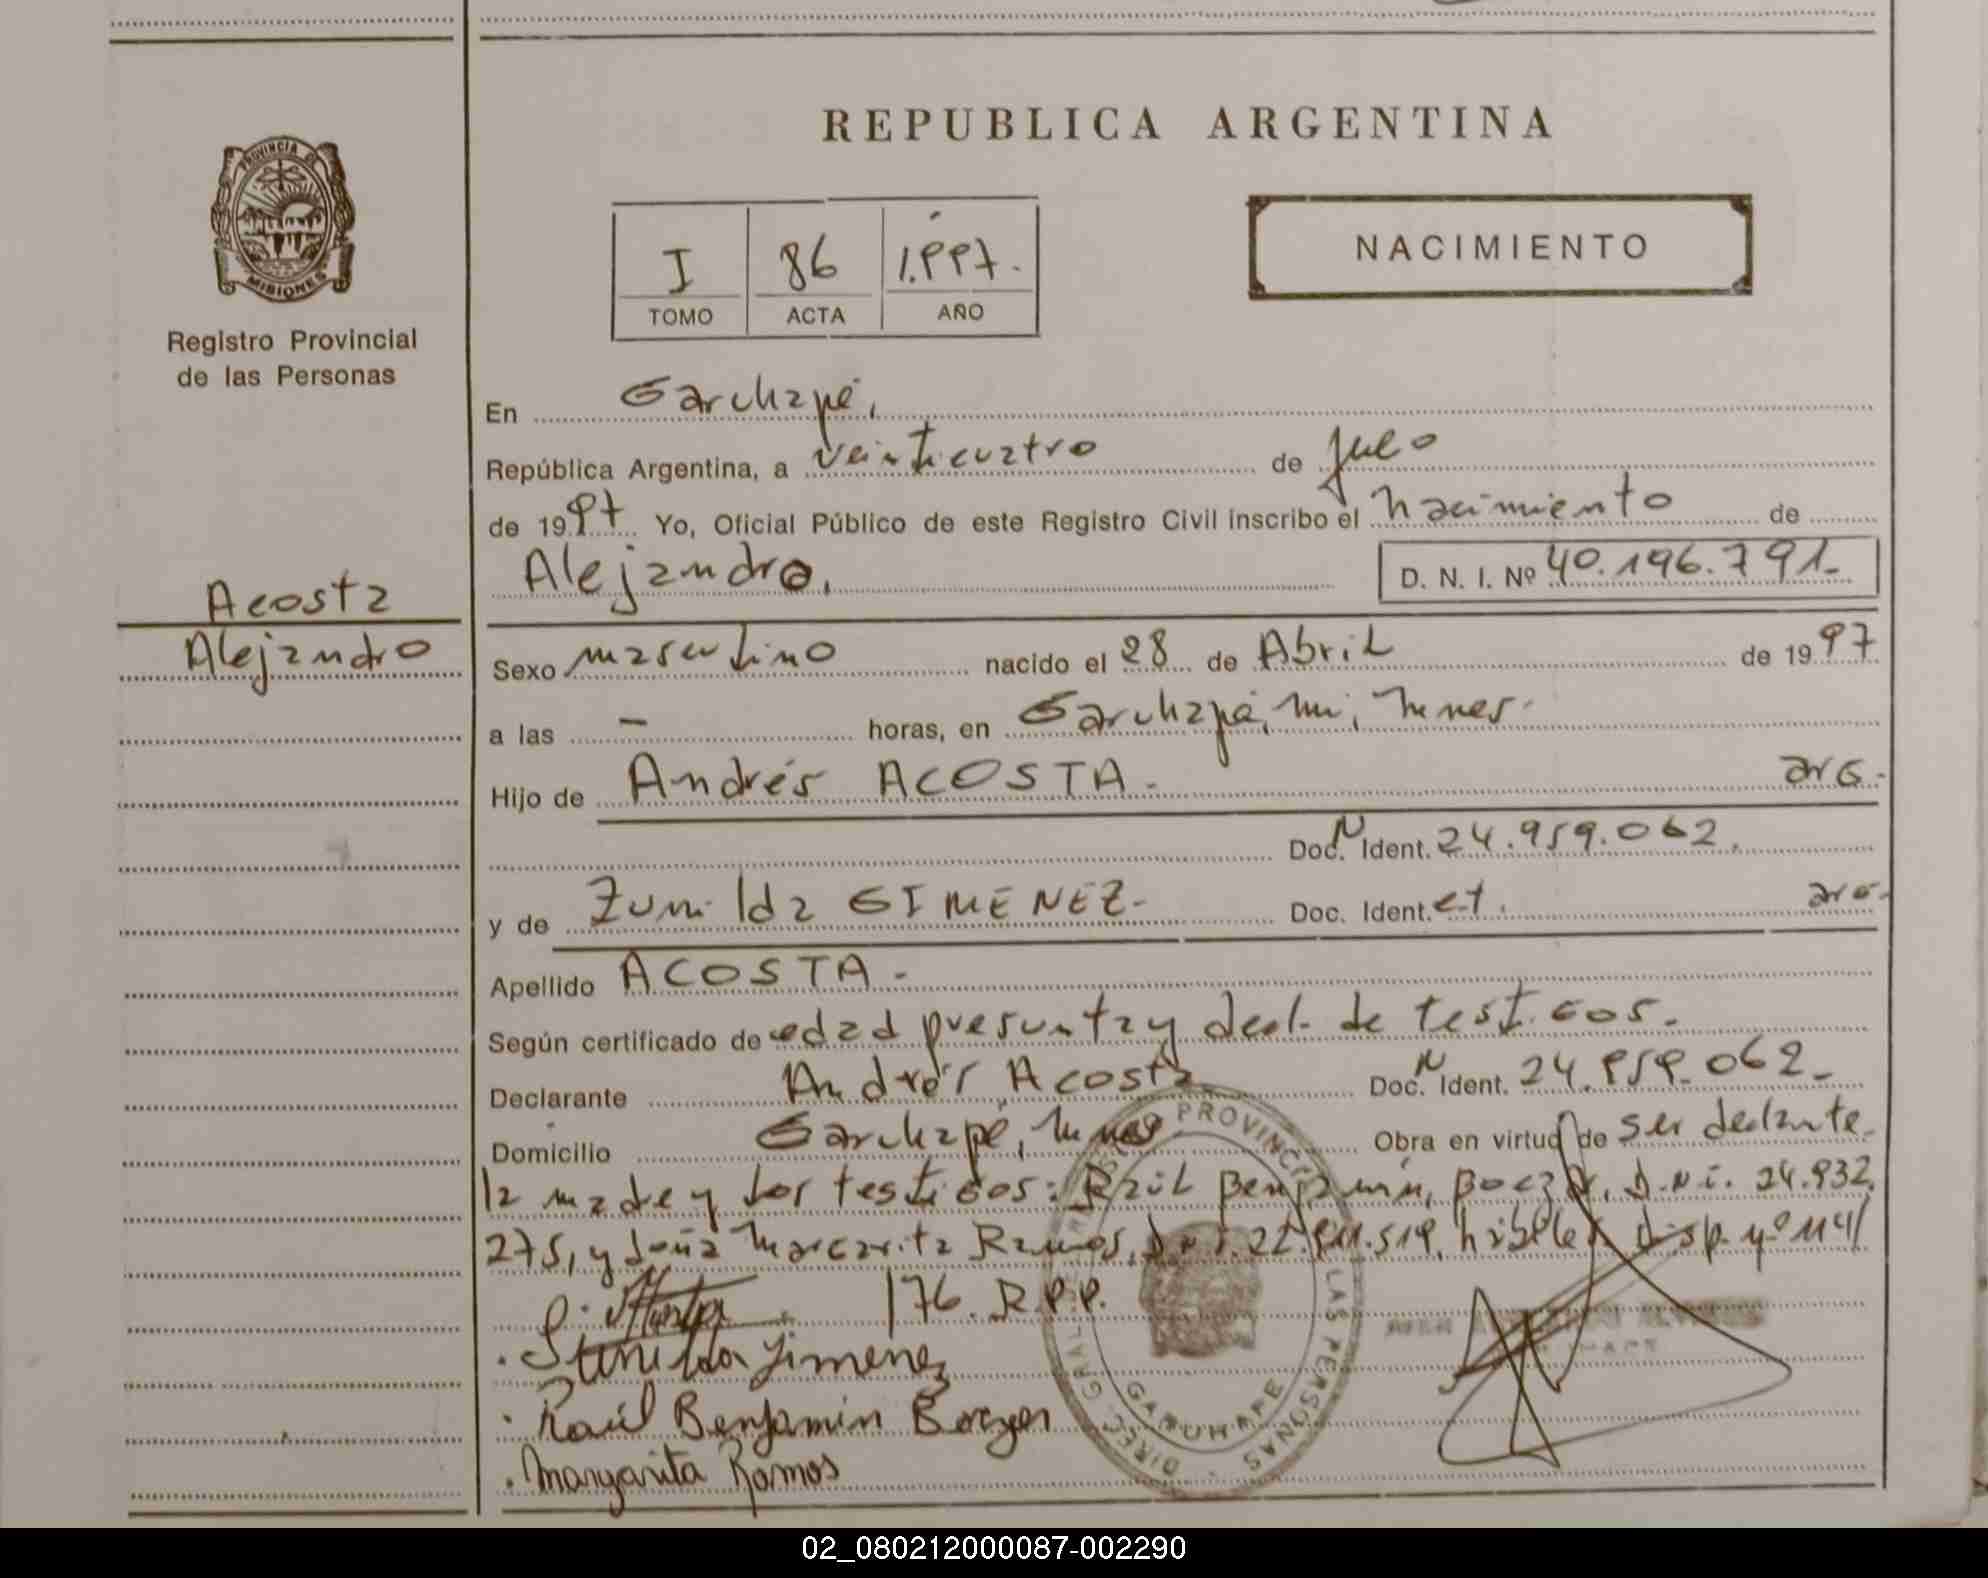 REPUBLICA ARGENTINA
PROVINCIA DE
MISIONES
Registro Provincial
de las Personas
NACIMIENTO
I 86 1.997.
TOMO ACTA AÑO
En Garuhapé,
República Argentina, a veinticuatro de julio
de 1997 Yo, Oficial Público de este Registro Civil inscribo el nacimiento de
Alejandro, D. N. I. Nº 40.196.791-
Acosta
Alejandro
Sexo masculino nacido el 28 de Abril de 1997
a las — horas, en Garuhapé, mi,
Hijo de Andrés ACOSTA - arg.-
Doc. N Ident. 24.959.062.
y de Zunilda GIMENEZ- Doc. Ident. c.I. arg.-
Apellido ACOSTA -
Según certificado de edad presunta y decl. de testigos.-
Declarante Andrés Acosta Doc. N Ident. 24.959.062-
Domicilio Garuhapé, Obra en virtud de ser declante.
la madre y los testigos: Raúl Benjamín, D.N.i. 24.932.
275, y doña Margarita Ramos, disp. nº 114/
176. R.P.P.
Jimenez
Raúl Benjamín
Margarita Ramos
DIREC. GRAL. PROVINCIAL LAS PERSONAS
GARUHAPE
02_080212000087-002290